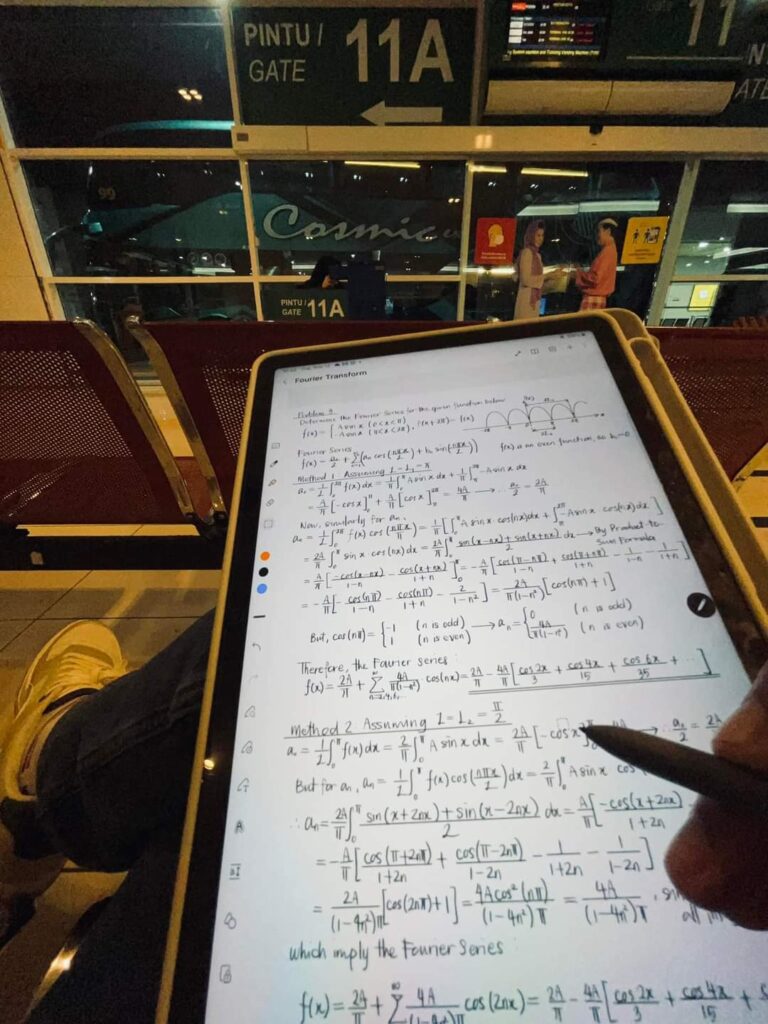 PINTU / GATE 11A
11
Cosmic
PINTU / GATE 11A
Fourier Transform
Problem 9
Determine the Fourier Series for the given function below
f(x) = { A sin x (0<x<π)
-A sin x (π<x<2π), f(x+2π) = f(x)
Fourier Series
f(x) = a₀/2 + Σ(aₙ cos(nπx/L) + bₙ sin(nπx/L)) f(x) is an even function, so bₙ=0
Method 1 Assuming L = L₁ = π
a₀ = 1/L ∫₀^2π f(x) dx = 1/π ∫₀^π A sin x dx + 1/π ∫π^2π -A sin x dx
= A/π [-cos x]₀^π + A/π [cos x]π^2π = 4A/π → ∴ a₀/2 = 2A/π
Now, similarly for aₙ
aₙ = 1/L ∫₀^2π f(x) cos(nπx/L) = 1/π [∫₀^π A sin x · cos(nx) dx + ∫π^2π -A sin x cos(nx) dx]
= 2A/π ∫₀^π sin x · cos(nx) dx = 2A/π ∫₀^π sin(x-nx) + sin(x+nx)/2 dx → By Product-to-Sum Formula
= A/π [-cos(x-nx)/1-n - cos(x+nx)/1+n]₀^π = -A/π [cos(π-nπ)/1-n + cos(π+nπ)/1+n - 1/1-n - 1/1+n]
= -A/π [-cos(nπ)/1-n - cos(nπ)/1+n - 2/1-n²] = 2A/π(1-n²) [cos(nπ) + 1]
But, cos(nπ) = { -1 (n is odd) → aₙ = { 0 (n is odd)
1 (n is even) 4A/π(1-n²) (n is even)
Therefore, the Fourier series:
f(x) = 2A/π + Σ n=2,4,6,.. 4A/π(1-n²) · cos(nx) = 2A/π - 4A/π [cos 2x/3 + cos 4x/15 + cos 6x/35 + ...]
Method 2 Assuming L = L₂ = π/2
a₀ = 1/L ∫₀^π f(x) dx = 2/π ∫₀^π A sin x dx = 2A/π [-cos x]₀^π 4A → ∴ a₀/2 = 2A
But for aₙ, aₙ = 1/L ∫₀^π f(x) cos(nπx/L) dx = 2/π ∫₀^π A sin x cos
∴ aₙ = 2A/π ∫₀^π sin(x+2nx) + sin(x-2nx)/2 dx = A/π [-cos(x+2nx)/1+2n -
= -A/π [cos(π+2nπ)/1+2n + cos(π-2nπ)/1-2n - 1/1+2n - 1/1-2n]
= 2A/(1-4n²)π [cos(2nπ) + 1] = 4A cos²(nπ)/(1-4n²)π = 4A/(1-4n²)π , all
which imply the Fourier Series
f(x) = 2A/π + Σ^∞ 4A cos(2nx) = 2A/π - 4A/π [cos 2x/3 + cos 4x/15 +